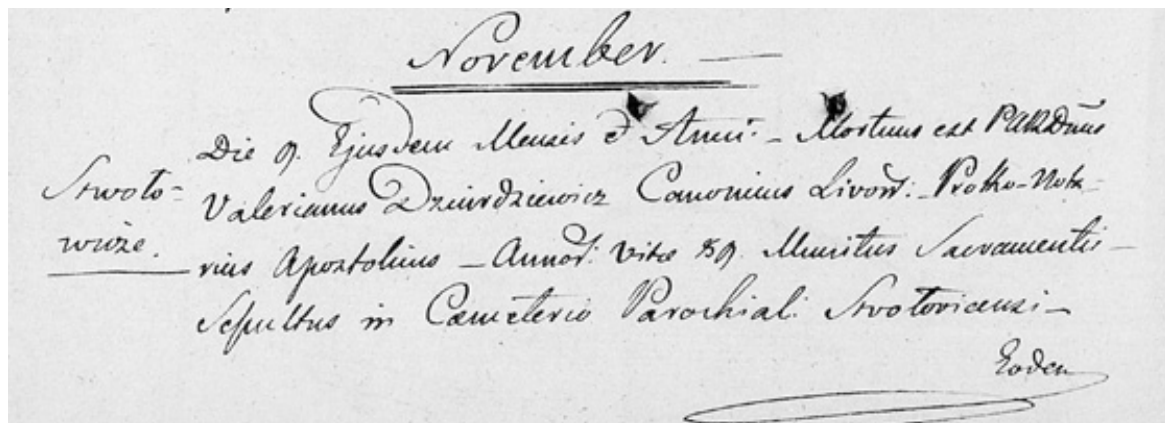 November. —
Die 9. Ejusdem Mensis et Anni. – Mortuus est
Stwoło- Valerianus Dziurdziewicz Canonicus Livon: Protho-Nota-
wicze. rius Apostolicus – Annor: vitæ 89. Munitus Sacramentis –
Sepultus in Cæmeterio Parochial: Stwolovicensi –
Eodem